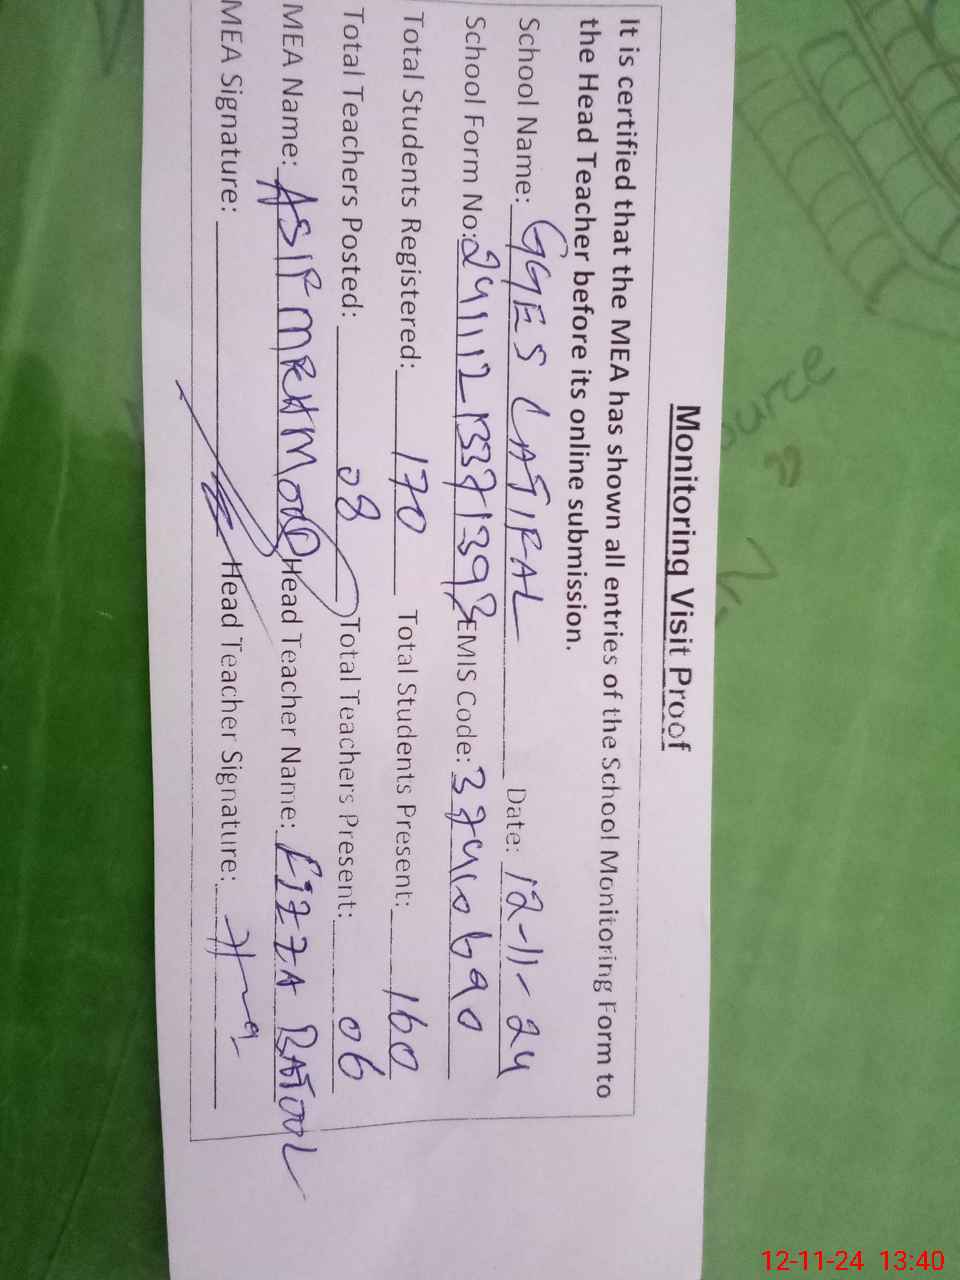 Monitoring Visit Proof
It is certified that the MEA has shown all entries of the School Monitoring Form to
the Head Teacher before its online submission.
School Name: GGES LATIFAL Date: 12-11-24
School Form No: EMIS Code: 37410690
Total Students Registered: 170 Total Students Present: 160
Total Teachers Posted: 08 Total Teachers Present: 06
MEA Name: ASIF MEHMOOD Head Teacher Name: FIZZA BATOOL
MEA Signature: Head Teacher Signature:
12-11-24 13:40